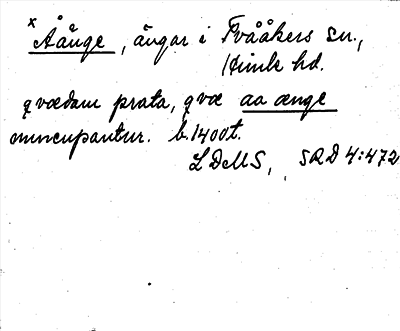 x Åänge, ängar i Tvååkers sn.,
Himle hd.
qvædam prata, qvæ aa ænge
nuncupantur. b. 1400t.
LDMS, SRD 4:472